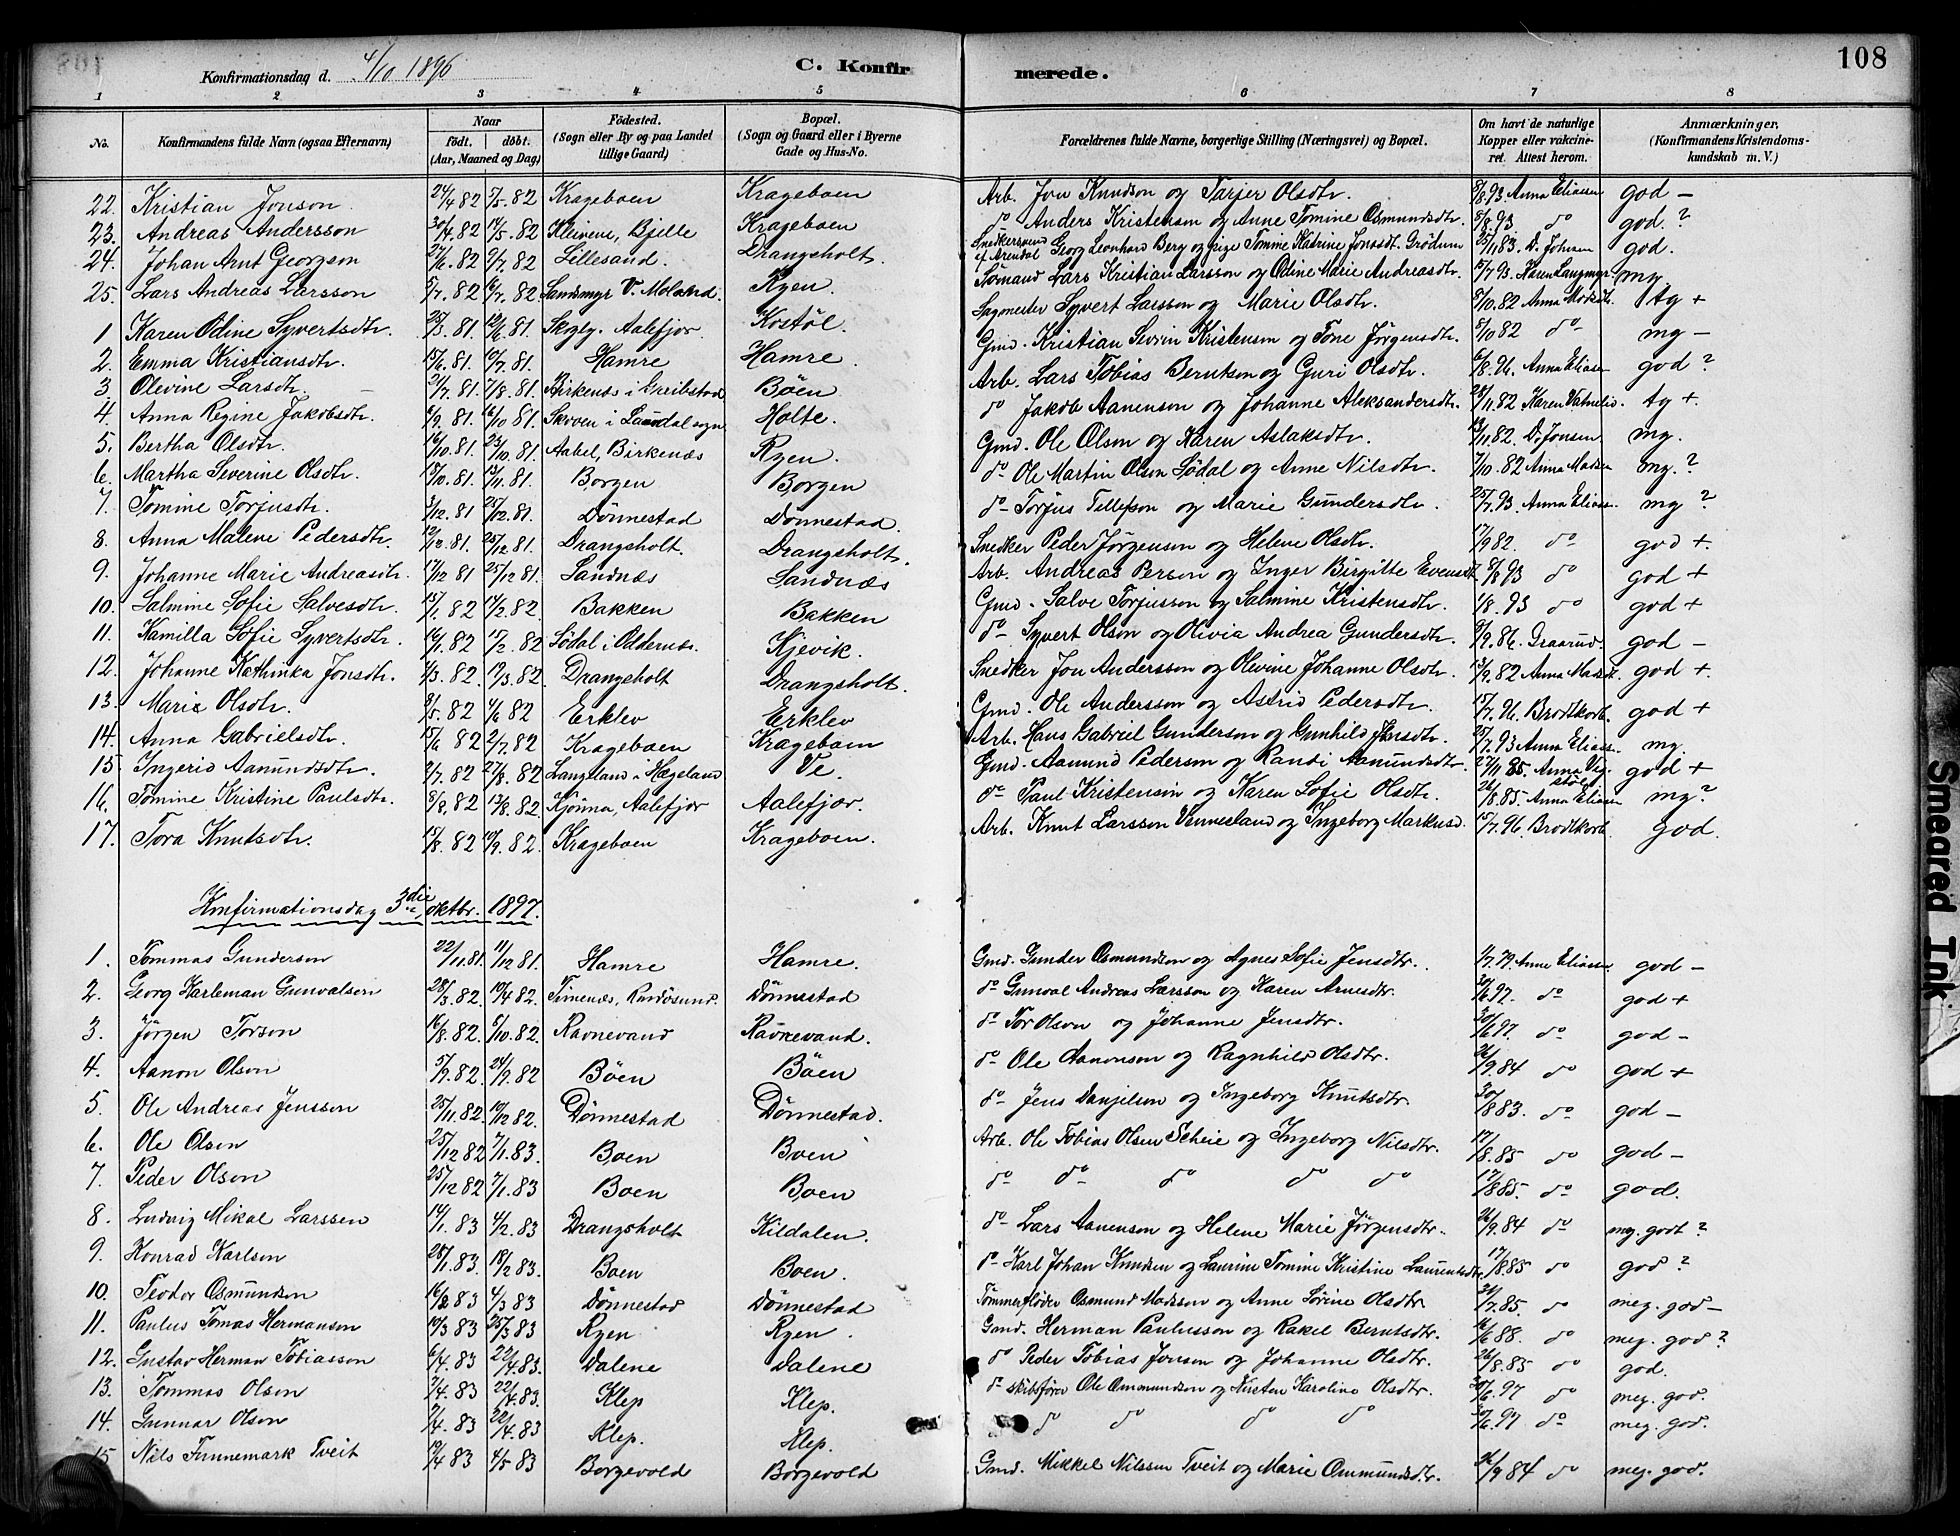 108
Konfirmationsdag d. 4/10 1896
C. Konfirmerede.
1 2 3 4 5 6 7 8
No. Konfirmandens fulde Navn (ogsaa Efternavn) Naar født. døbt. (Aar, Maaned og Dag) Fødested. (Sogn eller By og paa Landet tillige Gaard) Bopæl. (Sogn og Gaard eller i Byerne Gade og Hus-No. Forældrenes fulde Navne, borgerlige Stilling (Næringsvei) og Bopæl. Om havt de naturlige Kopper eller vakcineret. Attest herom. Anmærkninger. (Konfirmandens Kristendomskundskab m. V.)
22. Kristian Jonson. 24/4 82 7/5. 82 Krageboen Krageboen Arb. Jon Knudson og Tarjer Olsdtr. 8/8.93 Anna Eliassen god –
23. Andreas Andersson 30/4. 82 14/5. 82 Kleivene, Bjelle Krageboen do Anders Kristenson og Anne Tomine Osmundsdtr. 8/8.93 do god. ?
24. Johan Arnt Georgson 27/6. 82 9/7. 82 Lillesand. Drangsholt. Snedkersvend af Arendal Georg Leonhard Berg og pige Tomine Katrine Jonsdt. Grödum 25/11 83. D. Johnsen god.
25. Lars Andreas Larsson 5/7. 82 16/7. 82 Sandsmyr V. Moland. Ryen. Sömand Lars Kristian Larsson og Odine Marie Andreasdtr. 15/7 93. Karen Langmyr mg
1 Karen Odine Syvertsdtr. 25/3. 81. 12/6 81. Skogly. Aalefjær Kostöl. Sagmester Syvert Larsson og Marie Olsdtr. 8/10. 82 Anna Madsdt. tg +
2. Emma Kristiansdtr. 15/6. 81. 10/7. 81. Hamre Hamre. Gmd. Kristian Severin Kristenson og Tone Jörgensdtr. 8/10 82 do mg –
3 Olevine Larsdtr. 21/7. 81. 7/8. 81. Birkenæs i Greibstad Böen Arb. Lars Tobias Berntson og Guri Olsdtr. 6/8. 96. Anna Eliassen god ?
4 Anna Regine Jakobsdtr. 6/9. 81. 16/10 81. Skoven i Laudal sogn. Holte. do Jakob Aanenson og Johanne Aleksandersdtr. 28/11. 82 Karen Vatnelid. tg +.
5. Bertha Olsdtr. 16/10. 81. 23/10. 81. Aabel, Birkenæs Ryen. Gmd. Ole Olson og Karen Aslaksdtr. 13/11 82. D. Jonsen. mg.
6 Martha Severine Olsdtr. 15/10. 81. 13/11. 81. Borgen Borgen do Ole Martin Olson Södal og Anne Nilsdtr. 7/10. 82 Anna Madsen mg. ?
7. Tomine Torjusdtr. 3/12. 81 25/12. 81. Dönnestad Dönnestad. do Torjus Tellefson og Marie Gundersdtr. 25/7. 93. Anna Eliass. mg ?
8. Anna Malene Pedersdtr. 12/12. 81. 25/12 81. Drangsholt. Drangsholt. Snedker Peder Jörgenson og Helene Olsdtr. 17/9 82. do god +.
9. Johanne Marie Andreasdtr. 17/12 81 25/12 81. Sandnæs Sandnæs Arb. Andreas Person og Inger Birgitte Evensdt. 8/8 93 do god +
10. Salmine Sofie Salvesdtr. 15/1. 82 14/2. 82 Bakken Bakken Gmd. Salve Torjusson og Salmine Kristensdtr. 1/8. 93 do god +
11. Kamilla Sofie Syvertsdtr. 16/1. 82 15/2. 82 Södal i Oddernæs. Kjevik. do Syvert Olson og Olivia Andrea Gundersdtr. 9/9. 86. Graarud. god –
12. Johanne Kathinka Jonsdtr. 4/3. 82 19/3. 82 Drangsholt Drangsholt. Snedker Jon Andersson og Olevine Johanne Olsdtr. 13/9. 82 Anna Madsdt. god +
13. Marie Olsdtr. 31/5. 82 4/6 82 Erklev Erklev Gmd. Ole Andersson og Astrid Pedersdtr. 15/7. 96. Brodtkorb. god +
14. Anna Gabrielsdtr. 15/6 82 2/7. 82 Krageboen Krageboen Arb. Hans Gabriel Gunderson og Gunhild Jensdtr. 25/7. 93 Anna Eliass. mg.
15. Ingerid Aanundsdtr. 2/7. 82 27/8. 82 Langeland i Hægeland Ve. Gmd. Aanund Pederson og Randi Aanundsdtr. 27/11 85. Anna Vigstöl. god +
16. Tomine Kristine Paulsdtr. 8/8. 82 13/8. 82 Kjönna, Aalefjær Aalefjær. do Paul Kristenson og Karen Sofie Olsdtr. 26/8. 85. Anna Eliassen mg ?
17. Tora Knutsdtr. 15/8. 82 10/9. 82. Krageboen Krageboen. Arb. Knut Larsson Vennesland og Ingeborg Markusd. 15/7. 96. Brodtkorb. god.
Konfirmationsdag 3die oktbr. 1897.
1. Tommas Gunderson 22/11. 81. 11/12 81. Hamre Hamre. Gmd. Gunder Osmundson og Agnes Sofie Jensdtr. 1/7. 79. Anne Eliassen god –
2. Georg Karleman Gunvalsen 28/3. 82. 10/4 82. Timenæs, Randösund. Dönnestad do Gunval Andreas Larsson og Karen Arnesdtr. 30/6 97. do god +
3. Jörgen Torson 16/8. 82. 8/10. 82. Ravnevand Ravnevand. do Tor Olson og Johanne Jensdtr. 30/6 97 do god –
4. Aanon Olson 5/9. 82. 24/9. 82 Böen Böen do Ole Aanonson og Ragnhild Olsdtr. 26/9. 84 do god +
5. Ole Andreas Jensson 25/11. 82 10/12 82. Dönnestad Dönnestad. do Jens Danjelson og Ingeborg Knutsdtr. 30/1 83. do god –
6. Ole Olsen 25/12 82 7/1. 83. Boen Boen Arb. Ole Tobias Olsen Scheie og Ingeborg Nilsdtr. 17/8. 85 do god –
7. Peder Olson 25/12 82 7/1. 83 Boen Boen do do do do do 17/8 85. do god.
8. Ludvig Mikal Larssen 14/1. 83 4/2. 83 Drangsholt Kildalen. do Lars Aanenson og Helene Marie Jörgensdtr. 26/9. 84 do mg. godt ?
9. Konrad Karlson 28/1. 83. 18/2 83. Boen Boen. do Karl Johan Knudsen og Laurine Tomine Kristine Laurentsdtr 17/8. 85 do god ?
10. Teodor Osmundsen 16/2 83 4/3 83 Dönnestad Dönnestad Tömmerflöder Osmund Madsson og Anne Sörine Olsdtr. 21/7. 85. do meg. god –
11. Paulus Tomas Hermansen 10/3 83 25/3 83 Ryen Ryen. Gmd. Herman Paulusson og Rakel Berntsdtr. 16/6 88. do meg. god ?
12. Gustav Herman Tobiasson 6/4. 83 22/4. 83. Dalene Dalene do Peder Tobias Jonson og Johanne Olsdtr. 26/8. 85 do god.
13. Tommas Olson 7/4. 83 22/4. 83. Klep Klep. do skibsförer Ole Ommundson og Kirsten Karoline Olsdtr. 30/6. 97 do meg. god.
14. Gunnar Olson 7/4. 83 22/4. 83 Klep. Klep. do do do do 30/6. 97 do meg. god.
15 Nils Finnemark Tveit 19/4 83 4/5 83 Borgevold Borgevold Gmd. Mikkel Nilsson Tveit og Marie Ommundsdtr. 26/9 84 do meg. god.
Smeared Ink.